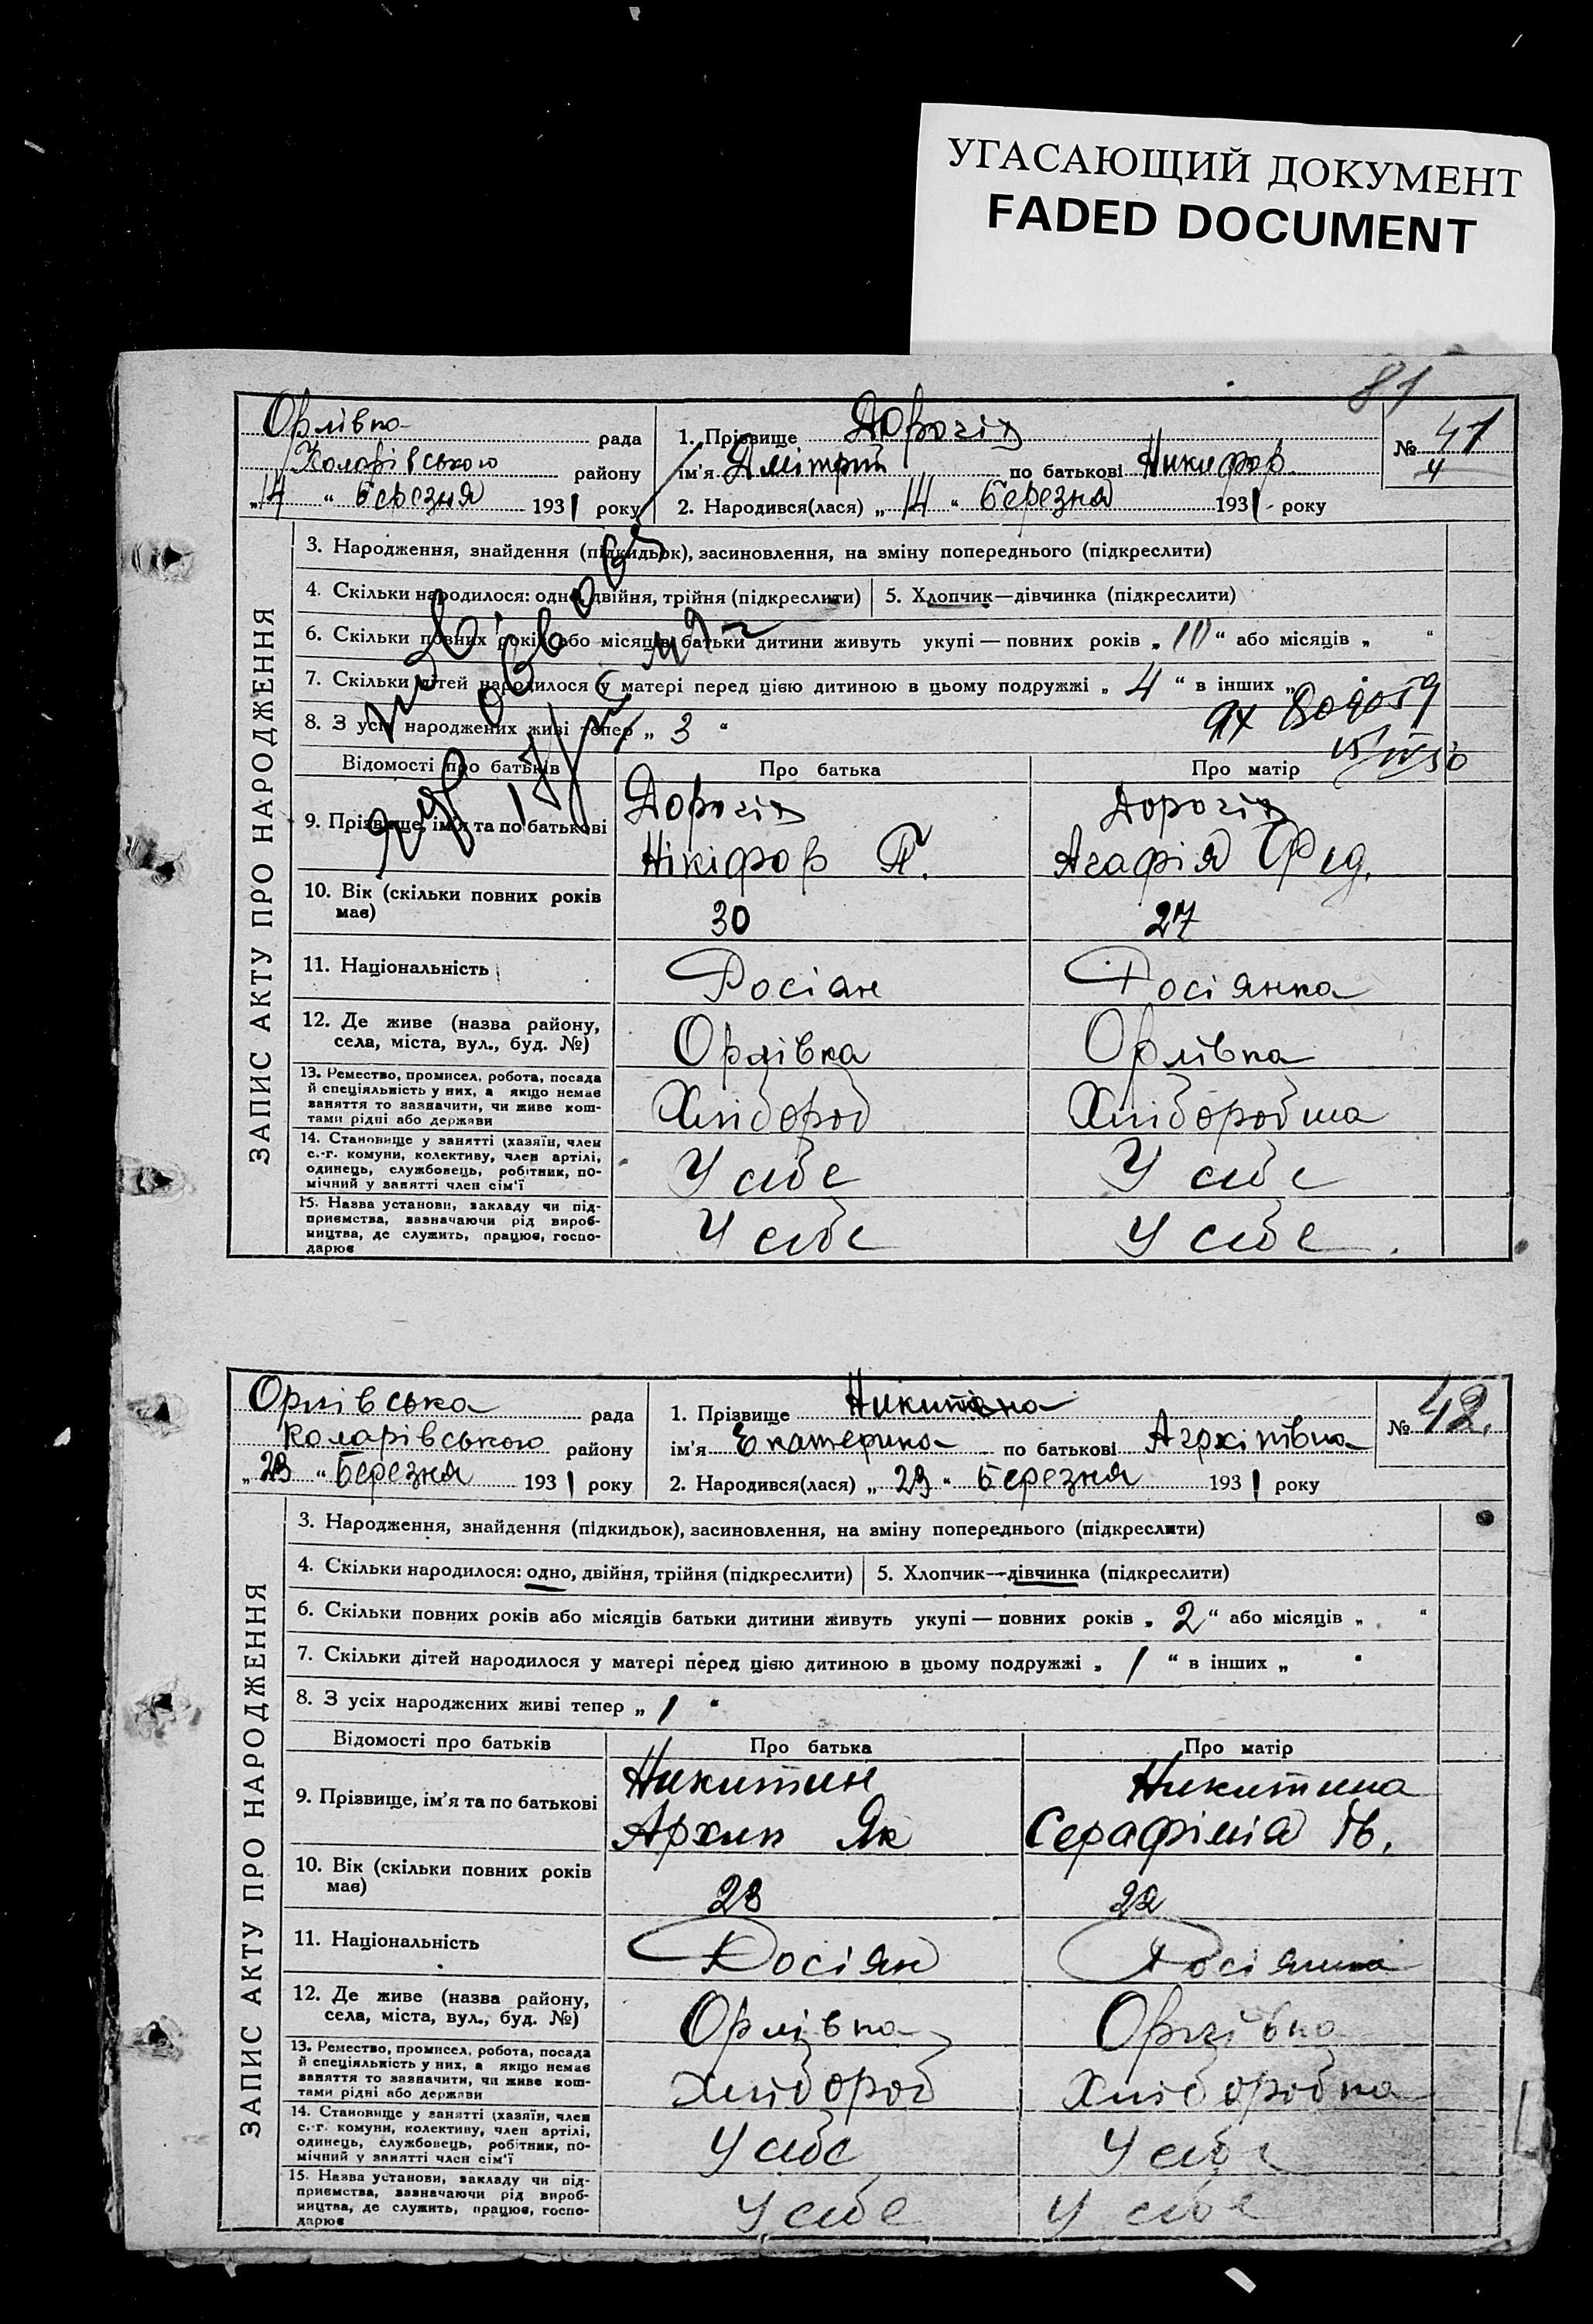 УГАСАЮЩИЙ ДОКУМЕНТ
FADED DOCUMENT
81
Орлівка рада
Коларівського району
„14“ березня 1931 року
1. Прізвище Дорогів
ім'я Дмітрий по батькові Никифор.
2. Народився(лася) „14“ березня 1931 року
№ 41
4
ЗАПИС АКТУ ПРО НАРОДЖЕННЯ
3. Народження, знайдення (підкидьок), засиновлення, на зміну попереднього (підкреслити)
4. Скільки народилося: одно, двійня, трійня (підкреслити) 5. Хлопчик—дівчинка (підкреслити)
6. Скільки повних років або місяців батьки дитини живуть укупі — повних років „10“ або місяців „ “
7. Скільки дітей народилося у матері перед цією дитиною в цьому подружжі „4“ в інших „
8. З усіх народжених живі тепер „3“
Відомості про батьків Про батька Про матір
9. Прізвище, ім'я та по батькові
Дорогів Дорогів
Нікіфор П. Агафія Фед.
10. Вік (скільки повних років
має)
30 27
11. Національність Росіян Росіянка
12. Де живе (назва району,
села, міста, вул., буд. №)
Орлівка Орлівка
13. Ремество, промисел, робота, посада
й спеціяльність у них, а якщо немає
заняття то зазначити, чи живе кош-
тами рідні або держави
Хлібороб Хліборобка
14. Становище у занятті (хазяїн, член
с.-г. комуни, колективу, член артілі,
одинець, службовець, робітник, по-
мічний у занятті член сім'ї
У себе У себе
15. Назва установи, закладу чи під-
приємства, зазначаючи рід вироб-
ництва, де служить, працює, госпо-
дарює
У себе У себе
Орлівська рада
Коларівського району
„23“ Березня 1931 року
1. Прізвище Никитина
ім'я Екатерина по батькові Архіпівна
2. Народився(лася) „23“ Березня 1931 року
№ 42.
ЗАПИС АКТУ ПРО НАРОДЖЕННЯ
3. Народження, знайдення (підкидьок), засиновлення, на зміну попереднього (підкреслити)
4. Скільки народилося: одно, двійня, трійня (підкреслити) 5. Хлопчик—дівчинка (підкреслити)
6. Скільки повних років або місяців батьки дитини живуть укупі — повних років „2“ або місяців „ “
7. Скільки дітей народилося у матері перед цією дитиною в цьому подружжі „1“ в інших „ “
8. З усіх народжених живі тепер „1“
Відомості про батьків Про батька Про матір
9. Прізвище, ім'я та по батькові
Никитин Никитина
Архип Як Серафімія Ів.
10. Вік (скільки повних років
має)
23 22
11. Національність Росіян Росіянка
12. Де живе (назва району,
села, міста, вул., буд. №)
Орлівка Орлівка
13. Ремество, промисел, робота, посада
й спеціяльність у них, а якщо немає
заняття то зазначити, чи живе кош-
тами рідні або держави
Хлібороб Хліборобка
14. Становище у занятті (хазяїн, член
с.-г. комуни, колективу, член артілі,
одинець, службовець, робітник, по-
мічний у занятті член сім'ї
У себе У себе
15. Назва установи, закладу чи під-
приємства, зазначаючи рід вироб-
ництва, де служить, працює, госпо-
дарює
У себе У себе